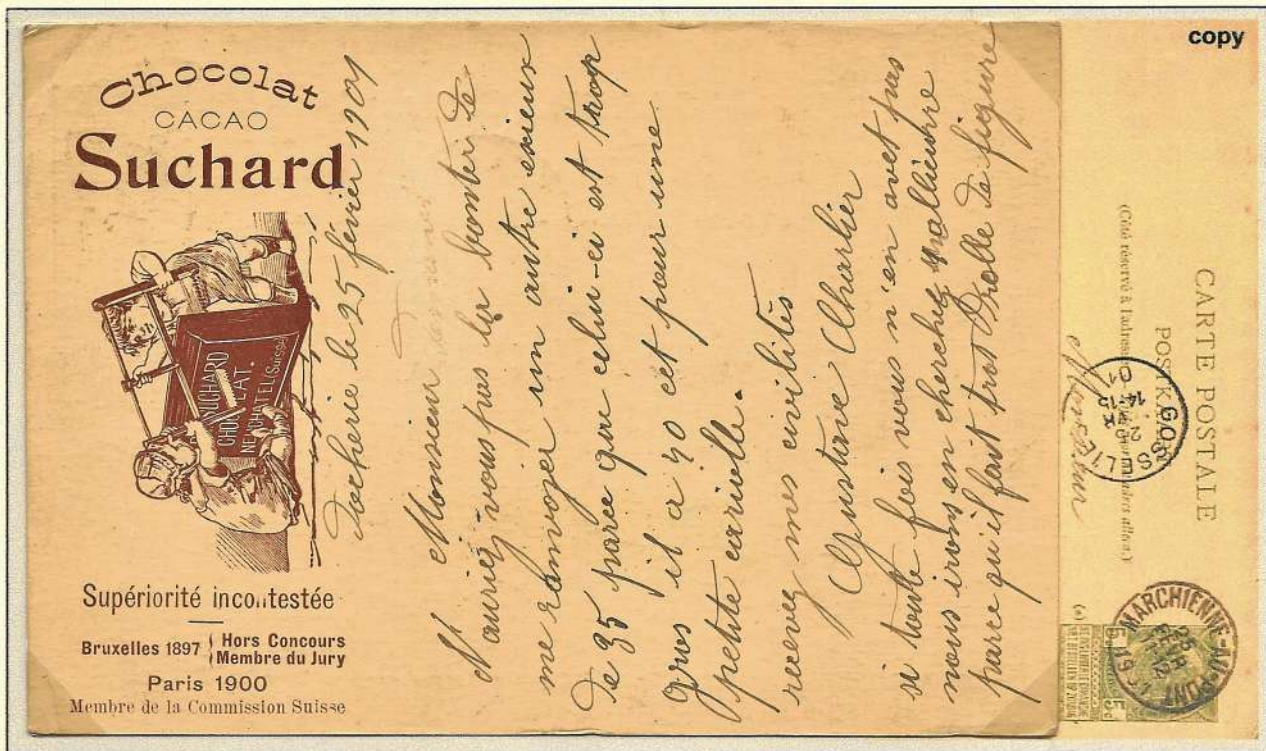 Chocolat
CACAO
Suchard
SUCHARD
CHOCOLAT
NEUCHATEL (SUISSE)
Supériorité incontestée
Bruxelles 1897 { Hors Concours
Membre du Jury
Paris 1900
Membre de la Commission Suisse
Docherie le 25 février 1901
Monsieur
N'auriez-vous pas la bontée de
me renvoyer un autre
de 35 parce que celui-ci est trop
gros il a 40 cet pour une
petite cariolle.
recevez mes civilités
Gustave Charlier
si toute fois vous n'en avet pas
nous irons en cherchez
parce qu'il fait trop drolle de figure
copy
CARTE POSTALE
POSTKAART
(Côté réservé à l'adresse
Monsieur
GOSSELIES
14-15
01
MARCHIENNE-AU-PONT
25
FEVR
5c